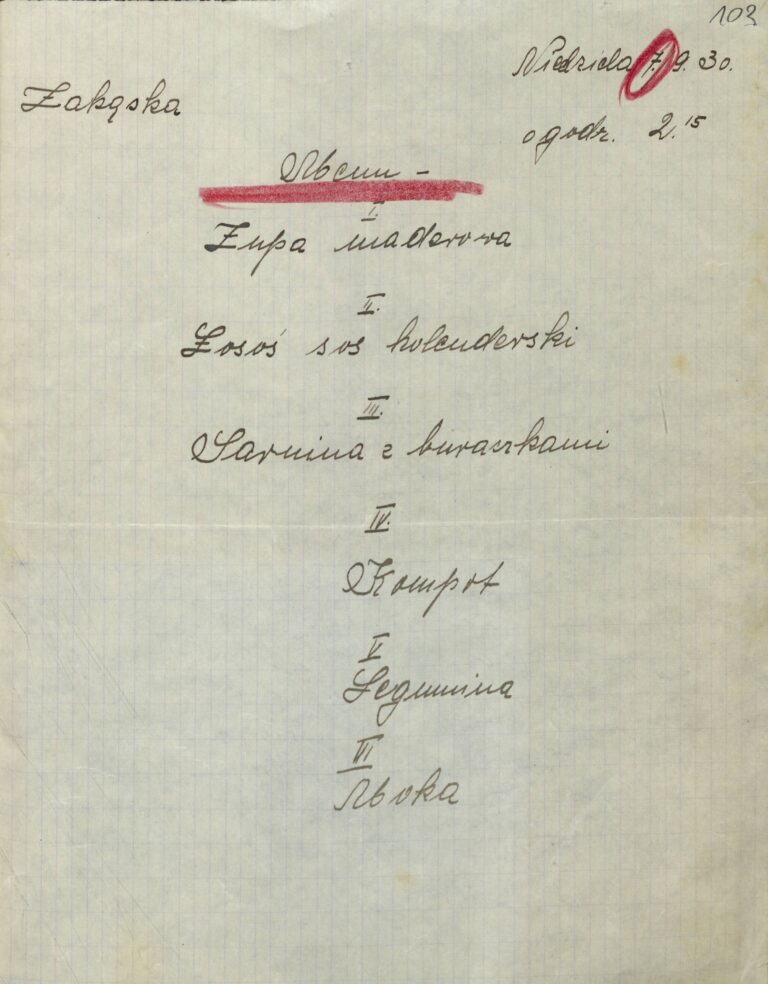 103
Niedziela 7. 9. 30.
Zakąska
o godz. 2.15
Menu -
I.
Zupa maderowa
II.
Łosoś sos holenderski
III.
Sarnina z buraszkami
IV.
Kompot
V
Legumina
VI
Moka